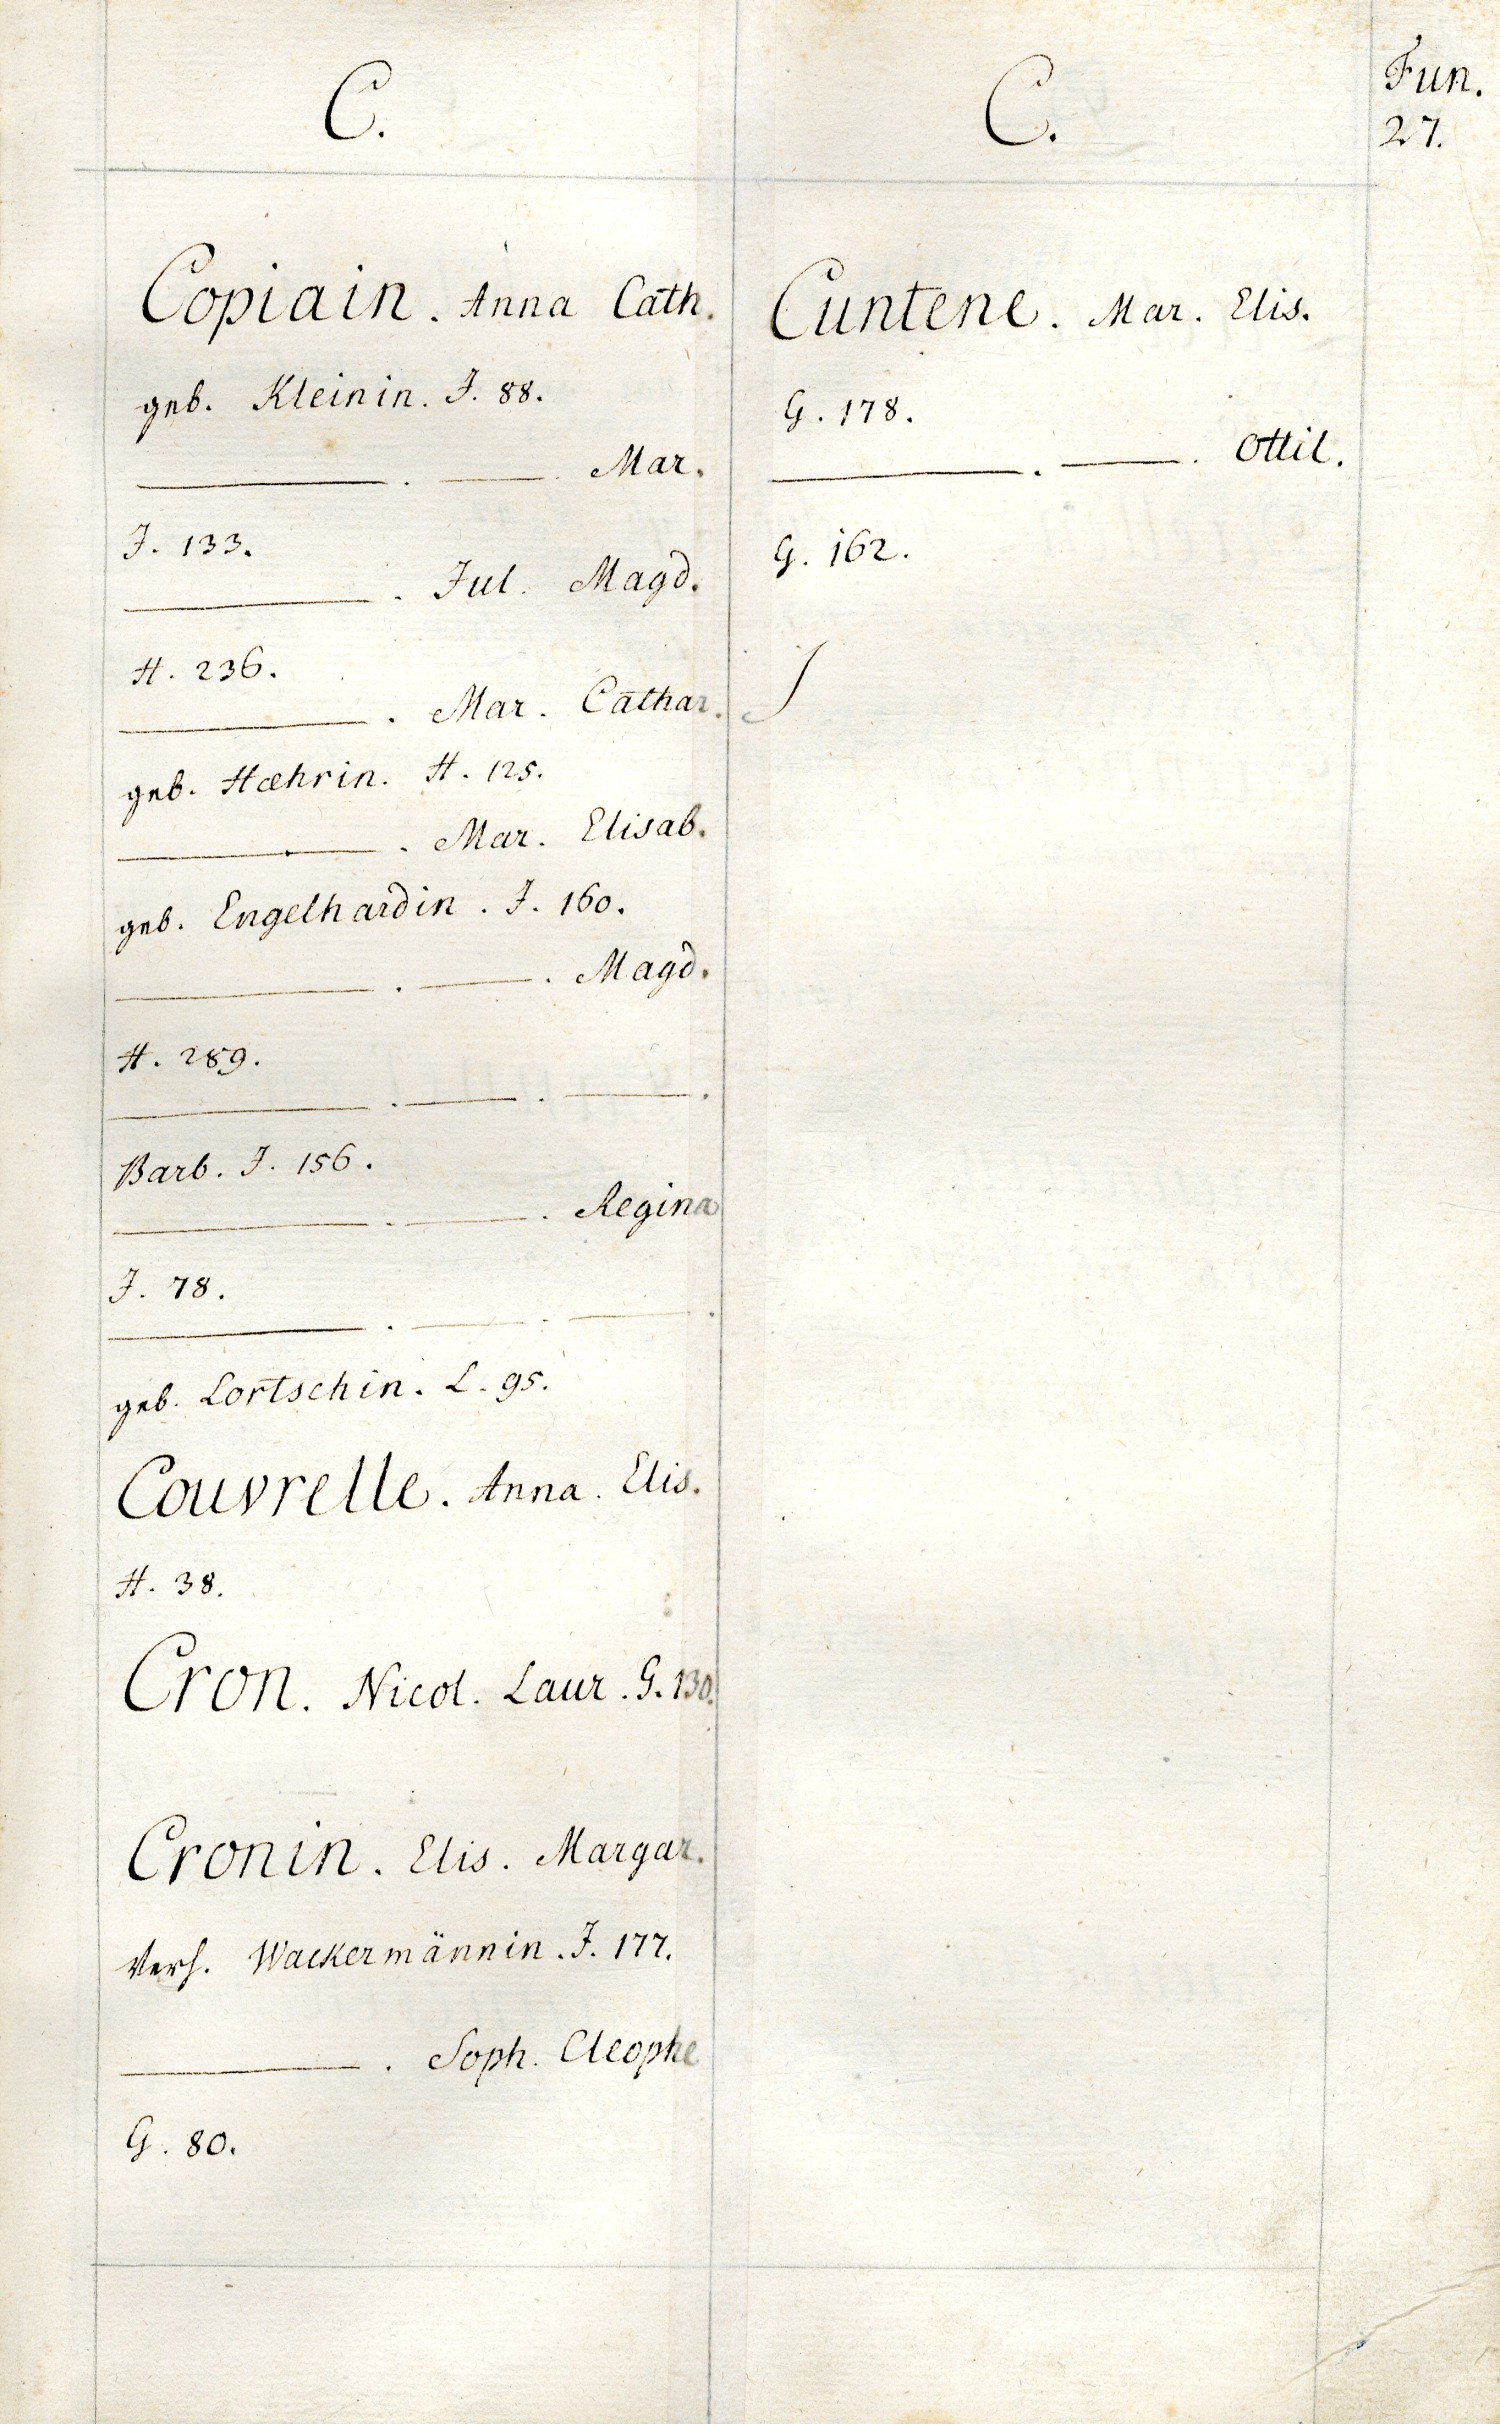 C.
Copiain. Anna Cath.
geb. Kleinin. J. 88.
———. ———. Mar.
J. 133.
———. Jul. Magd.
H. 236.
———. Mar. Cathar.
geb. Hæhrin. H. 125.
———. Mar. Elisab.
geb. Engelhardin. J. 160.
———. ———. Magd.
H. 289.
———. ———. ———.
Barb. J. 156.
———. ———. Regina
J. 78.
———. ———. ———.
geb. Lortschin. L. 95.
Couvrelle. Anna. Elis.
H. 38.
Cron. Nicol. Laur. G. 130.
Cronin. Elis. Margar.
Verh. Wackermännin. J. 177.
———. Soph. Cleophe
G. 80.
C.
Cuntene. Mar. Elis.
G. 178.
———. ———. Ottil.
G. 162.
Fun.
27.